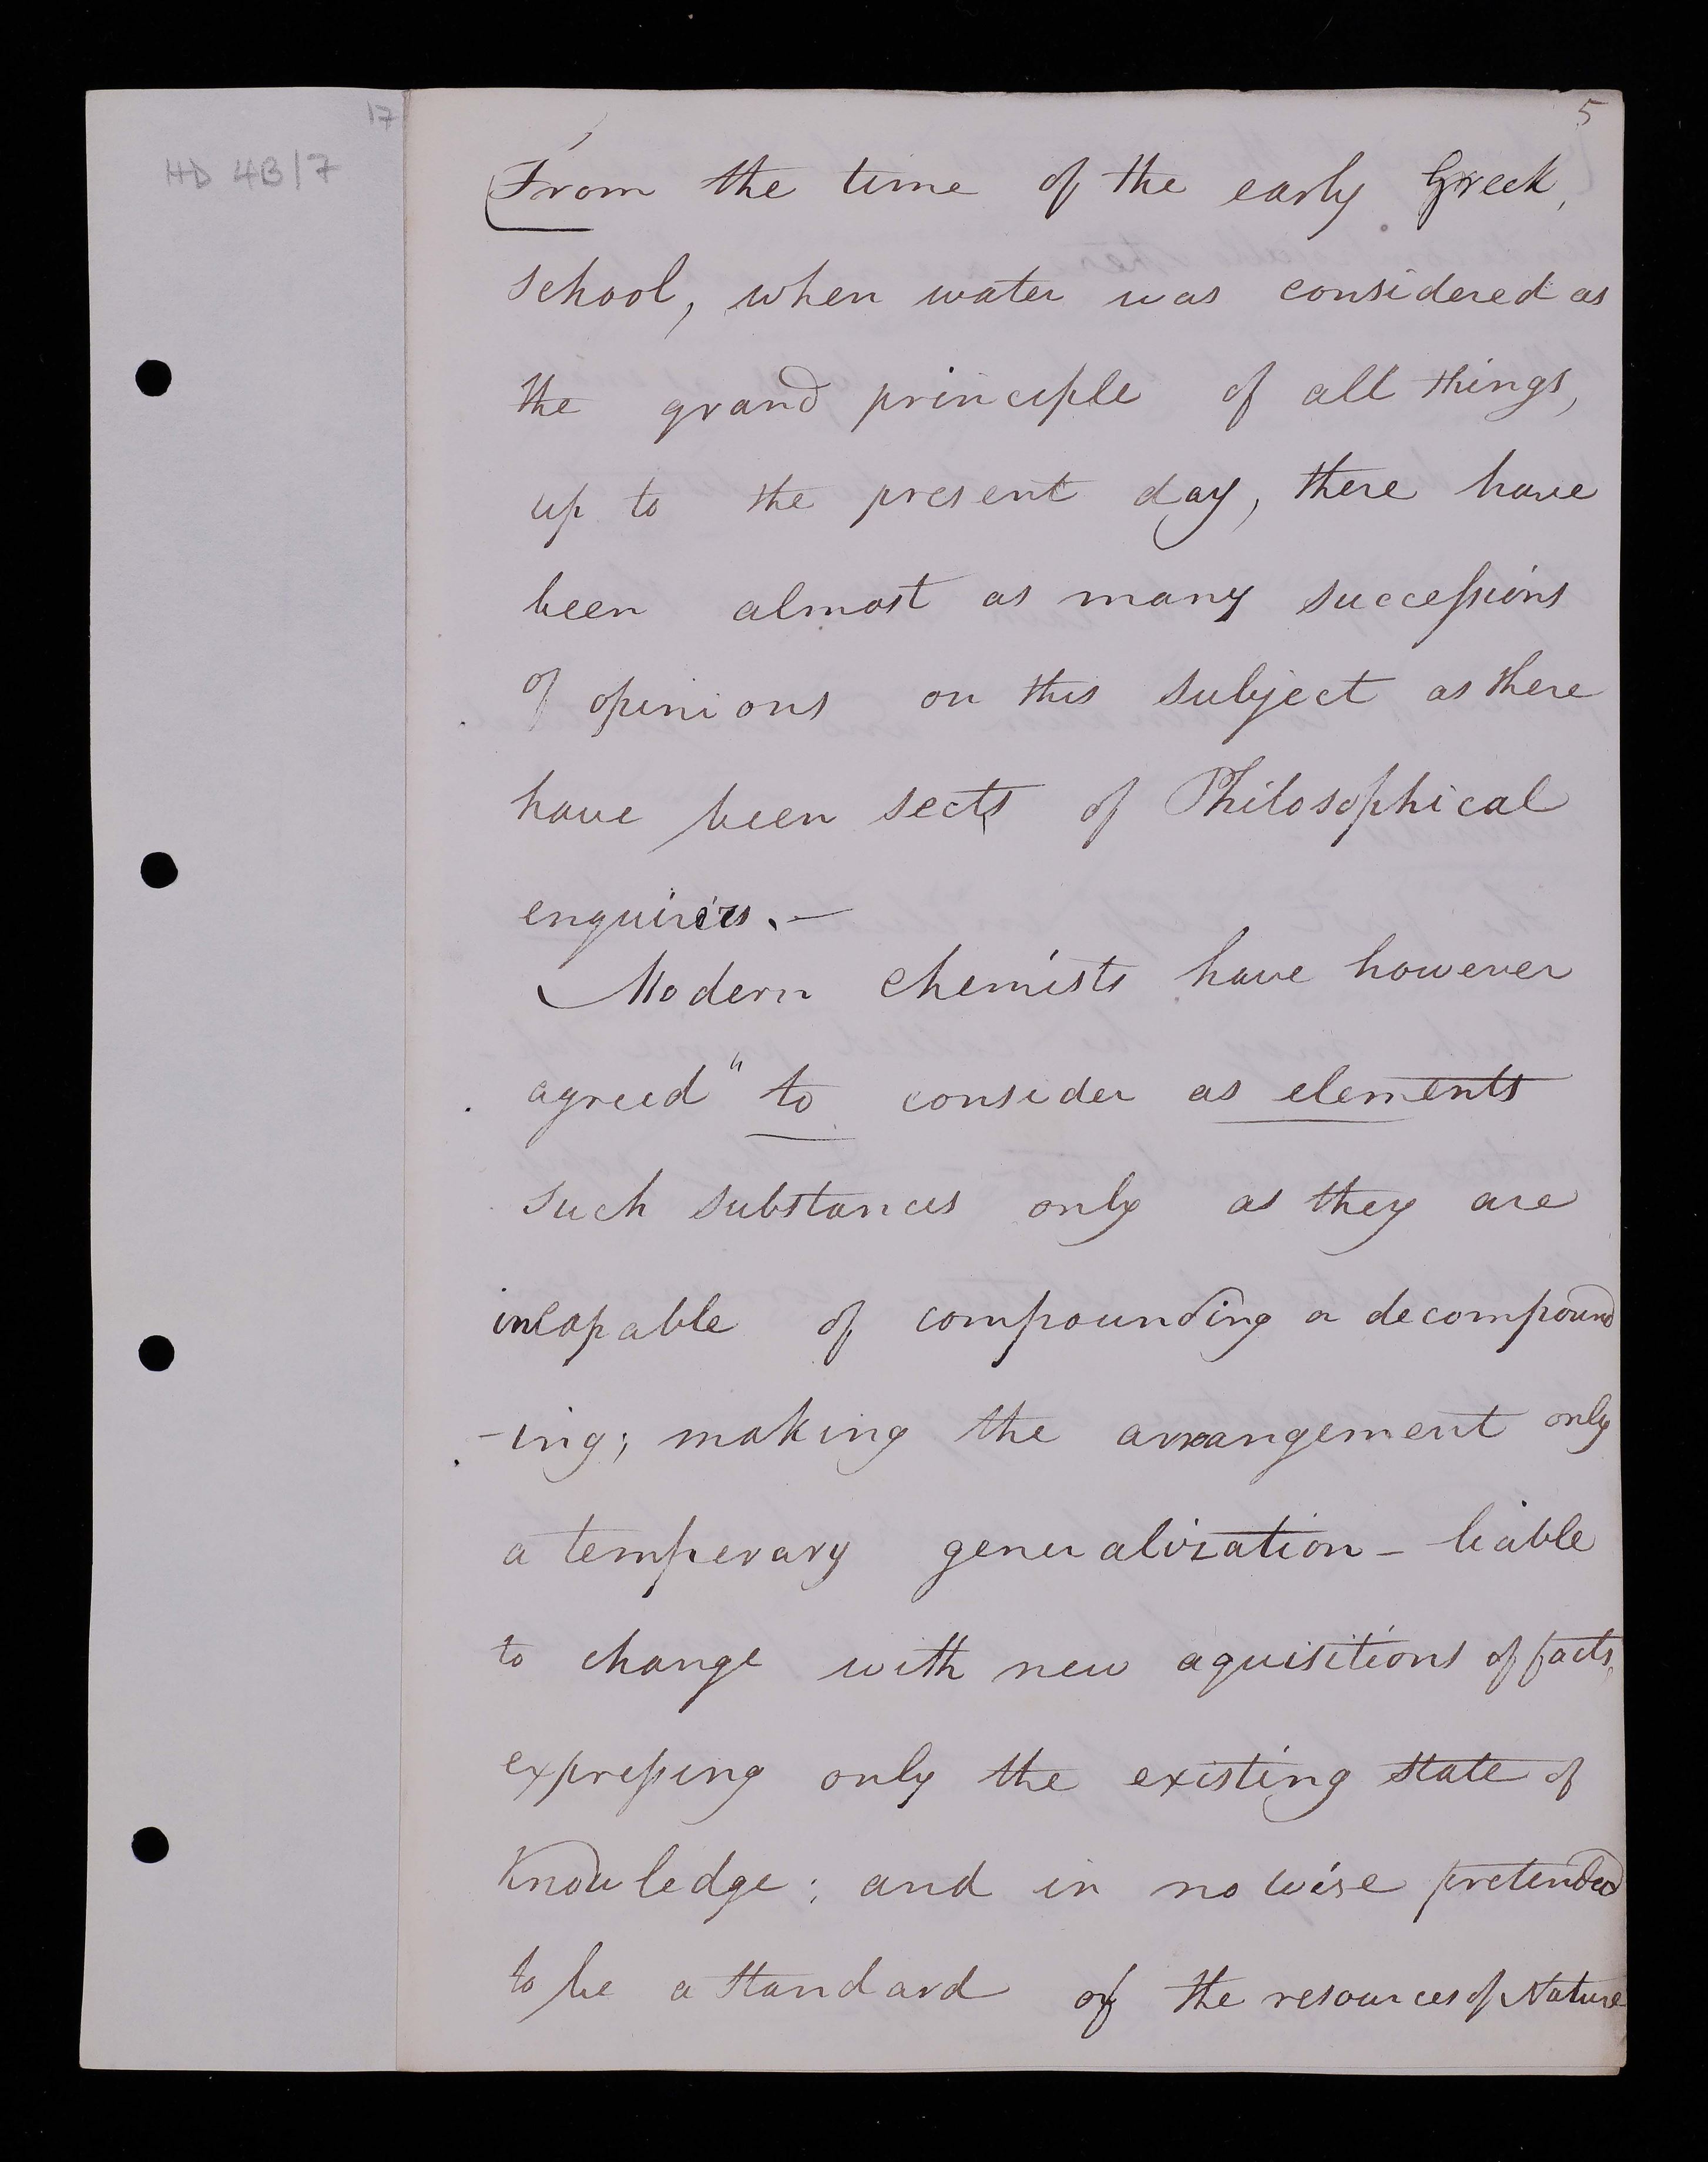 17
HD 4B/7
5
From the time of the early Greek,
school, when water was considered as
the grand principle of all things,
up to the present day, there have
been almost as many successions
of opinions on this subject as there
have been sects of Philosophical
enquiries. —
Modern chemists have however
agreed " to consider as elements
such substances only as they are
incapable of compounding or decompound
-ing; making the arrangement only
a temperary generalization - liable
to change with new aquisitions of facts,
expressing only the existing state of
Knowledge; and in no wise pretended
to be a standard of the resources of Nature